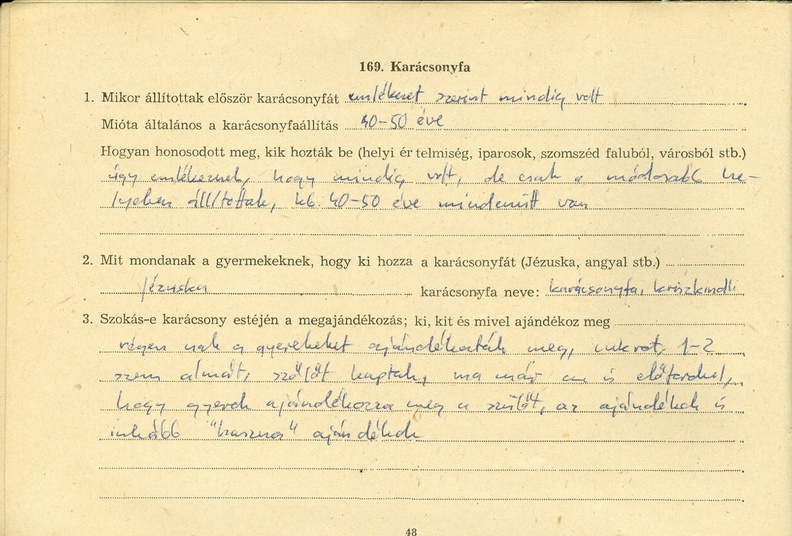 169. Karácsonyfa
1. Mikor állítottak először karácsonyfát emlékezet szerint mindig volt
Mióta általános a karácsonyfaállítás 40-50 éve
Hogyan honosodott meg, kik hozták be (helyi értelmiség, iparosok, szomszéd faluból, városból stb.)
úgy emlékeznek, hogy mindig volt, de csak a módosabb he-
lyeken állítottak, kb. 40-50 éve mindenütt van
2. Mit mondanak a gyermekeknek, hogy ki hozza a karácsonyfát (Jézuska, angyal stb.)
Jézuska karácsonyfa neve: karácsonyfa, kriszkindli
3. Szokás-e karácsony estéjén a megajándékozás; ki, kit és mivel ajándékoz meg
régen csak a gyerekeket ajándékozták meg, cukrot, 1-2
szem almát, szőlőt kaptak, ma már az is előfordul,
hogy gyerek ajándékozza meg a szülőt, az ajándékok is
inkább "hasznos" ajándékok
48